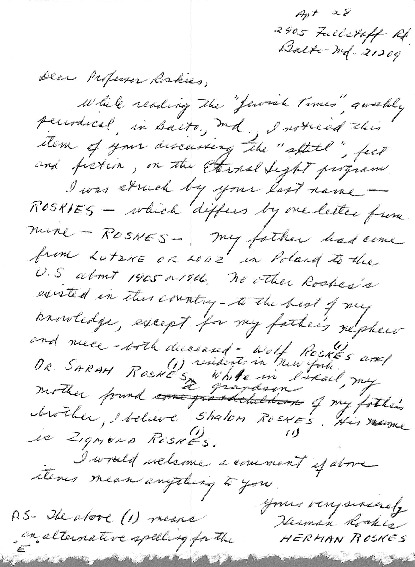 Apt 28
2905 Fallstaff Rd
Balto. Md. 21209
Dear Professor Roskies,
While reading the "Jewish Times", weekly
periodical, in Balto, Md, I noticed this
item of your discussing the "shtetl", fact
and fiction, on the Eternal Light program
I was struck by your last name —
ROSKIES — which differs by one letter from
mine — ROSKES —. My father had come
from LUTZKE OR LODZ in Poland to the
U.S about 1905 or 1906. No other Roskes's
existed in this country — to the best of my
knowledge, except for my father's nephew
and niece - both deceased - Wolf ROSKES and
(1)
DR. SARAH ROSKES, resident in New York
(1)
While in Israel, my
mother found some grandchildren of my father's
a grandson
brother, I believe SHALOM ROSKES. His name
(1)
is ZIGMUND ROSKES.
(1)
I would welcome a comment if above
items mean anything to you
Yours very sincerely
Herman Roskes
HERMAN ROSKES
P.S. The above (1) means
an alternative spelling for the
"E"